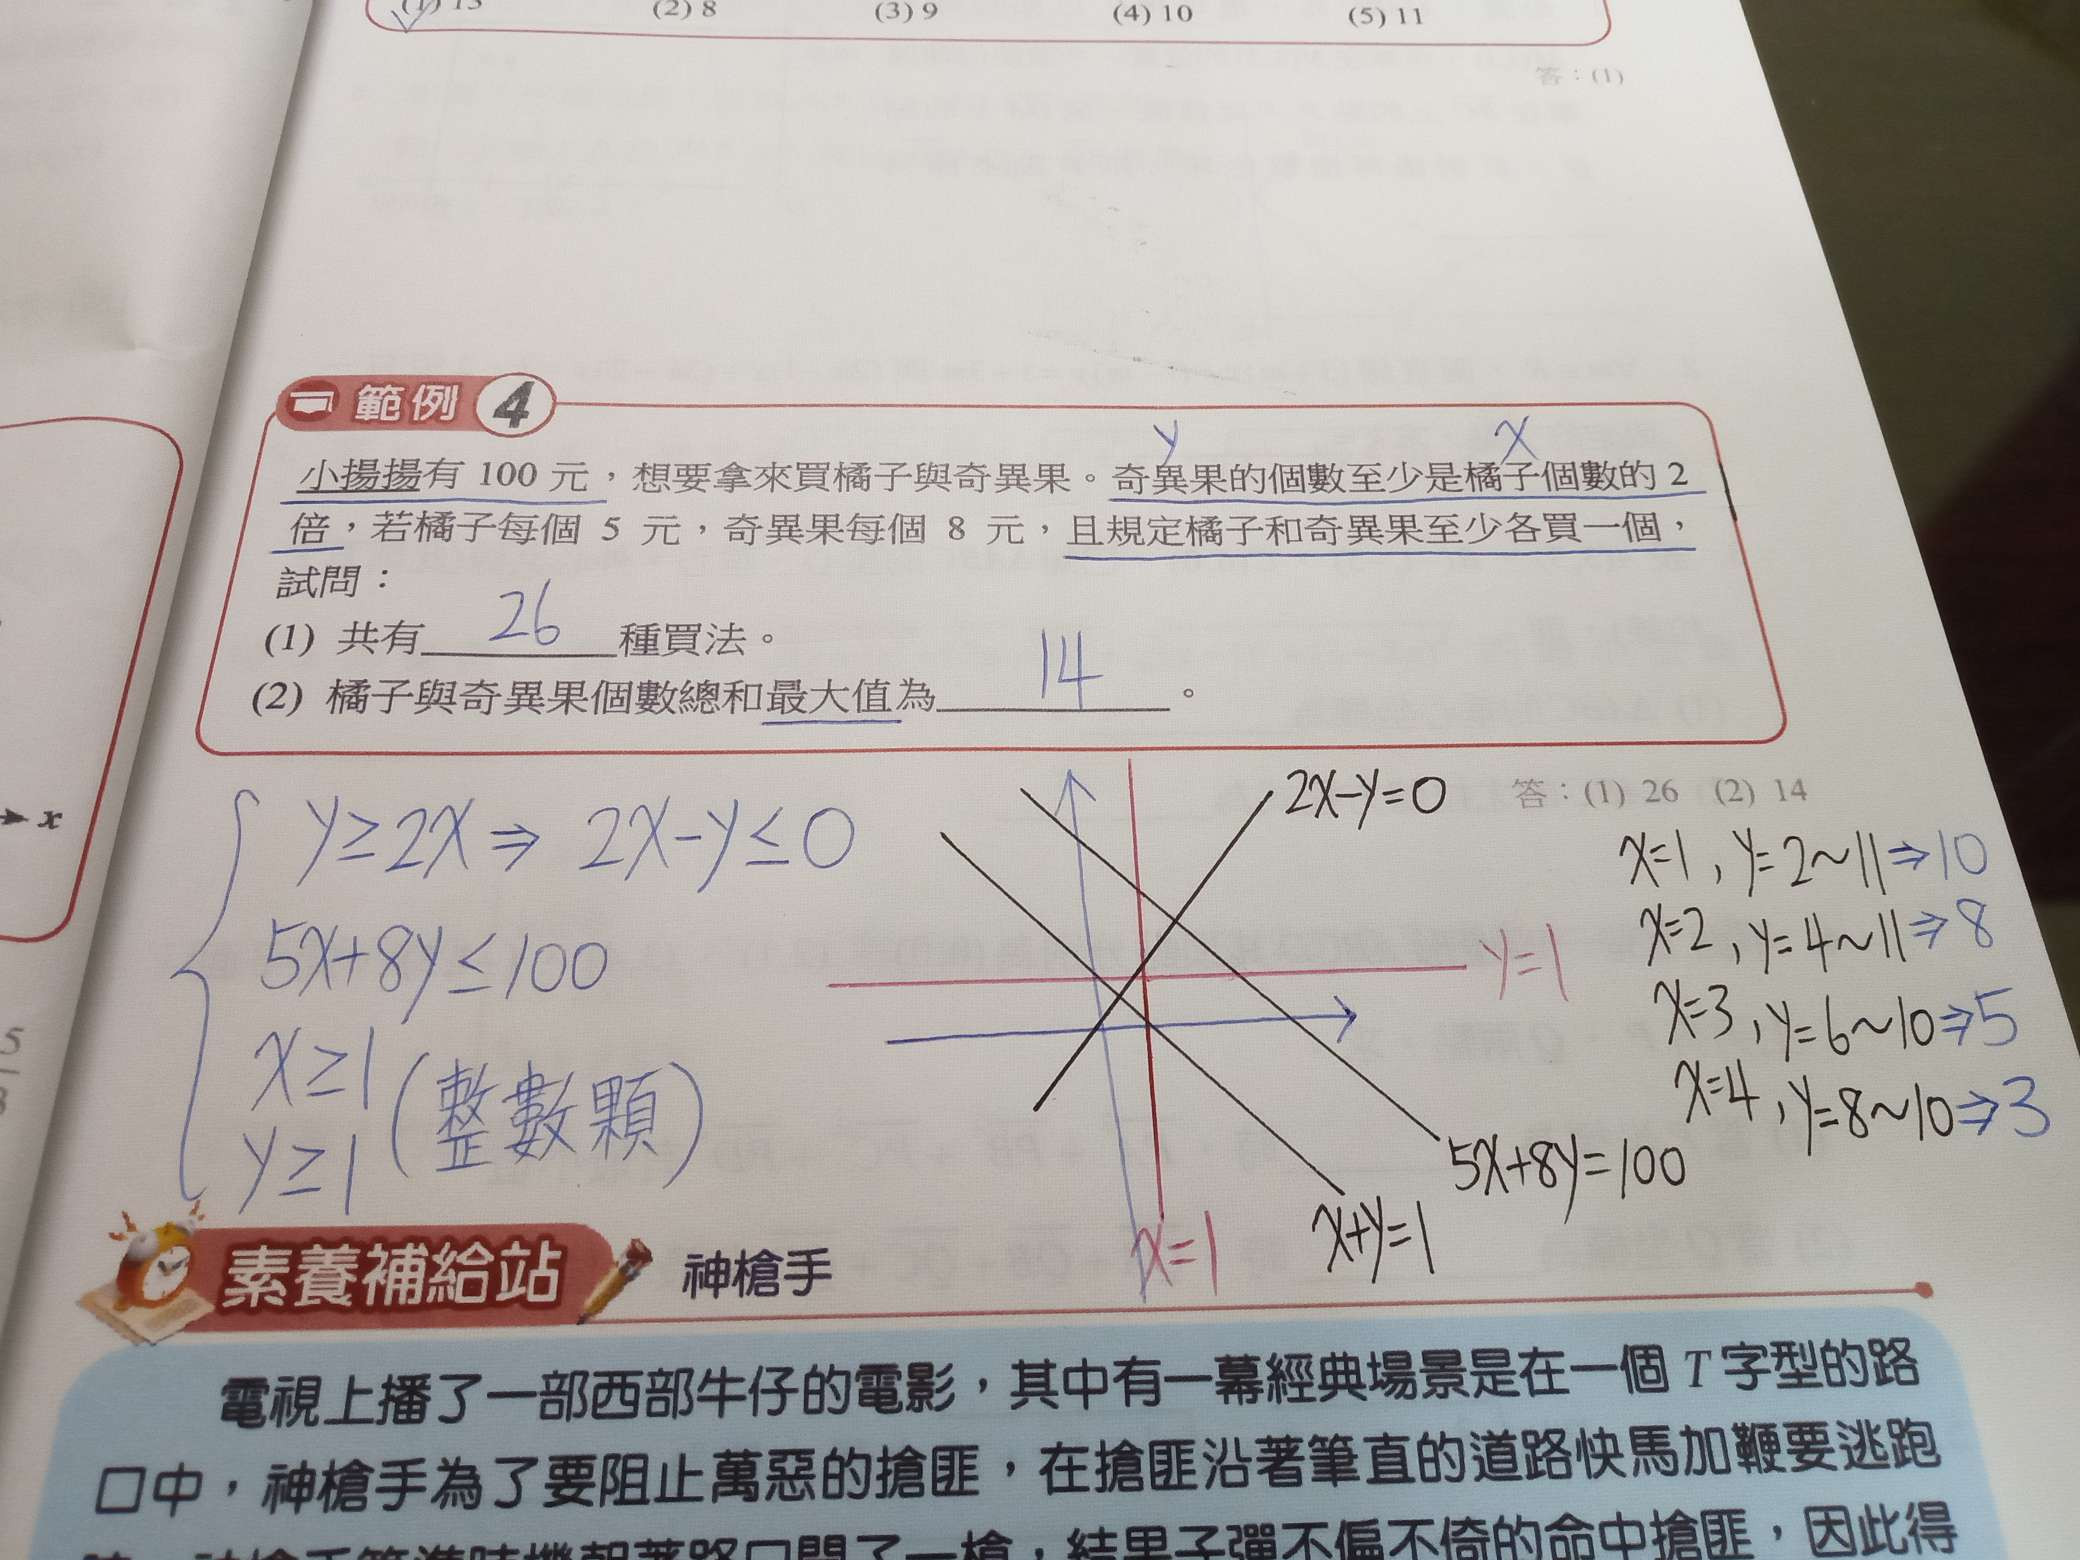 (1) 13 (2) 8 (3) 9 (4) 10 (5) 11
答：(1)
範例 4
y x
小揚揚有 100 元，想要拿來買橘子與奇異果。奇異果的個數至少是橘子個數的 2
倍，若橘子每個 5 元，奇異果每個 8 元，且規定橘子和奇異果至少各買一個，
試問：
(1) 共有 26 種買法。
(2) 橘子與奇異果個數總和最大值為 14 。
答：(1) 26 (2) 14
y≥2x⇒ 2x-y≤0
5x+8y≤100
x≥1
y≥1
(整數顆)
2x-y=0
y=1
5x+8y=100
x+y=1
x=1
x=1, y=2~11⇒10
x=2, y=4~11⇒8
x=3, y=6~10⇒5
x=4, y=8~10⇒3
x
5
素養補給站 神槍手
電視上播了一部西部牛仔的電影，其中有一幕經典場景是在一個 T 字型的路
口中，神槍手為了要阻止萬惡的搶匪，在搶匪沿著筆直的道路快馬加鞭要逃跑
結果子彈不偏不倚的命中搶匪，因此得